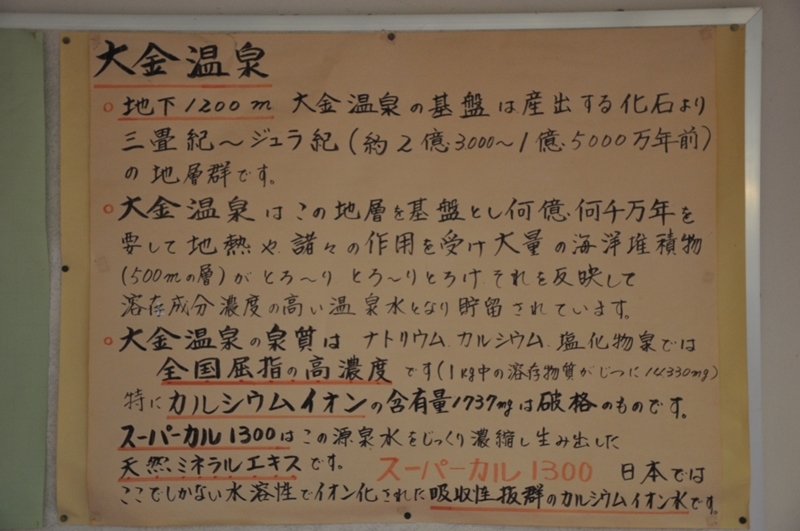 大金温泉
○地下1200m 大金温泉の基盤は産出する化石より
三畳紀〜ジュラ紀(約2億3000〜1億5000万年前)
の地層群です。
○大金温泉はこの地層を基盤とし何億、何千万年を
要して地熱や諸々の作用を受け大量の海洋堆積物
(500mの層)がとろ〜り、とろ〜りとろけ、それを反映して
溶存成分濃度の高い温泉水となり貯留されています。
○大金温泉の泉質は ナトリウム、カルシウム、塩化物泉では
全国屈指の高濃度です(1kg中の溶存物質がじつに14,330mg)
特にカルシウムイオンの含有量1737mgは破格のものです。
スーパーカル1300はこの源泉水をじっくり濃縮し生み出した
天然ミネラルエキスです。 スーパーカル1300 日本では
ここでしかない水溶性でイオン化された吸収性抜群のカルシウムイオン水です。